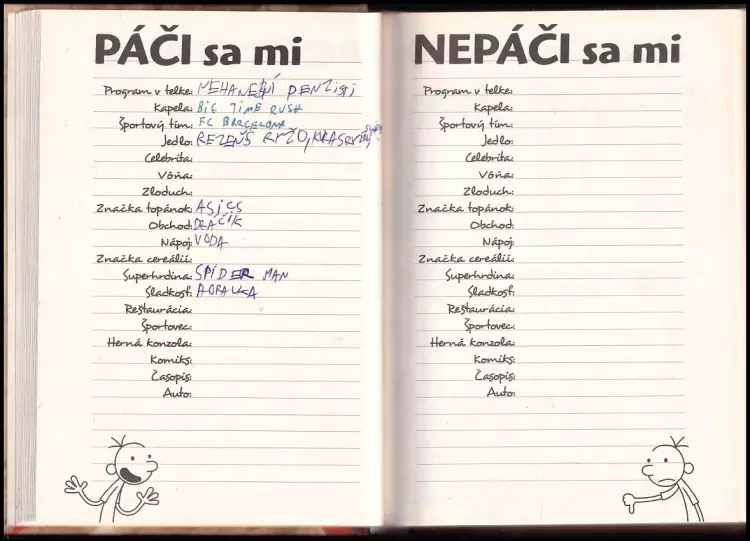 PÁČI sa mi
Program v telke: MEHANEŠÍ PENZISTI
Kapela: BIG TIME RUSH
Športový tím: FC BARCELONA
Jedlo: REZENŠ RYŽO,
Celebrita:
Vôňa:
Zloduch:
Značka topánok: ASICS
Obchod: DRÁČIK
Nápoj: VODA
Značka cereálií:
Superhrdina: SPIDER MAN
Sladkosť: HORALKA
Reštaurácia:
Športovec:
Herná konzola:
Komiks:
Časopis:
Auto:
NEPÁČI sa mi
Program v telke:
Kapela:
Športový tím:
Jedlo:
Celebrita:
Vôňa:
Zloduch:
Značka topánok:
Obchod:
Nápoj:
Značka cereálií:
Superhrdina:
Sladkosť:
Reštaurácia:
Športovec:
Herná konzola:
Komiks:
Časopis:
Auto: